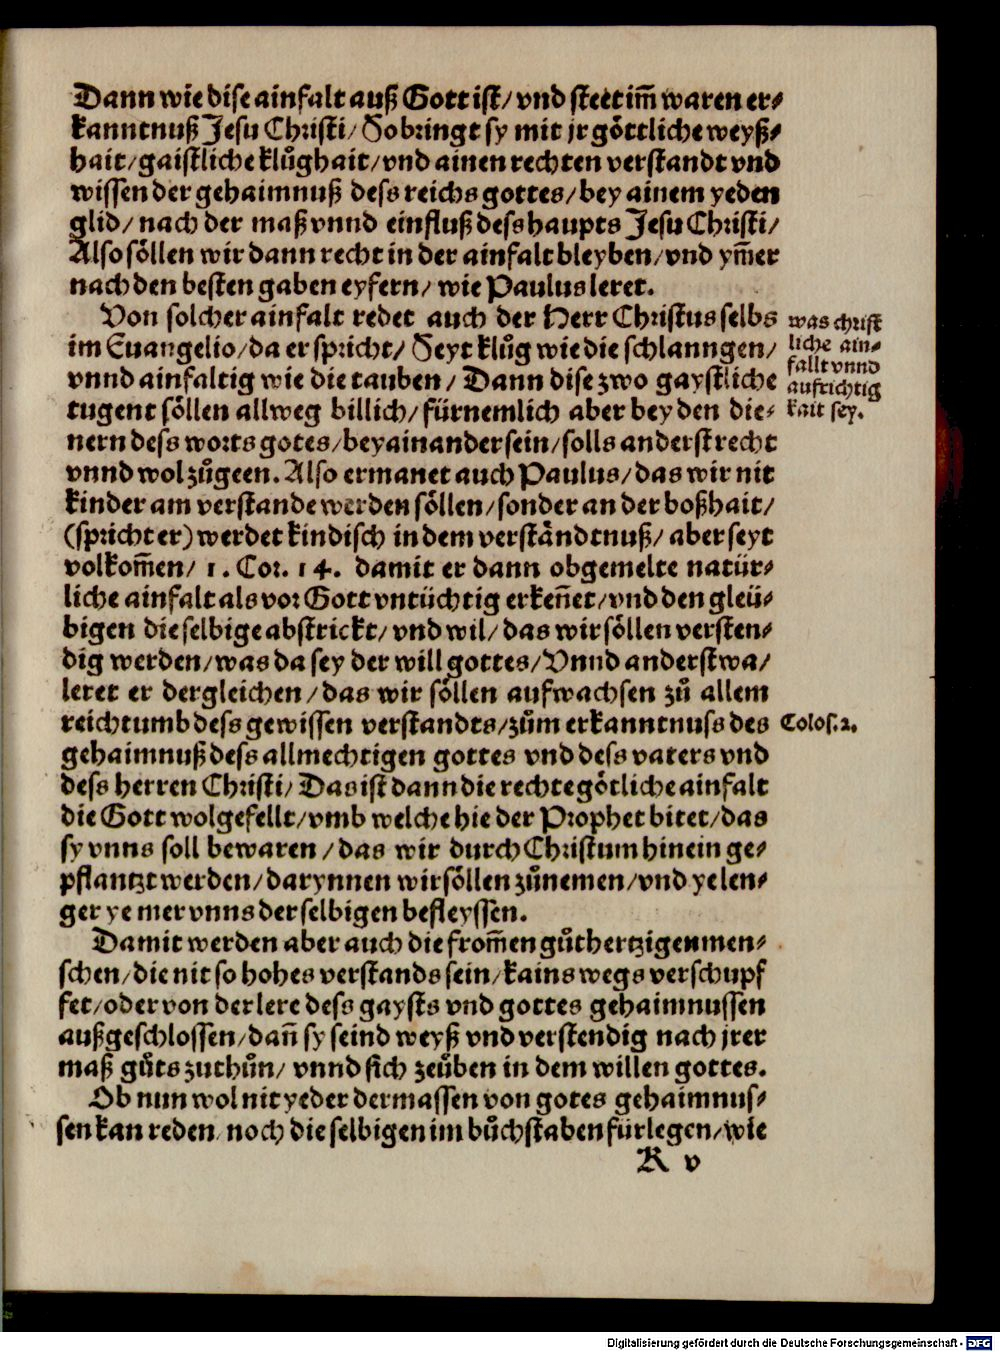 Dann wie dise ainfalt auß Gott ist/ vnd steet im̃ waren er⸗
kanntnuß Jesu Christi/ So bringt sy mit jr göttliche weyß⸗
hait/ gaistliche klůghait/ vnd ainen rechten verstandt vnd
wissen der gehaimnuß dess reichs gottes/ bey ainem yeden
glid/ nach der maß vnnd einfluß dess haupts Jesu Christi/
Also söllen wir dann recht in der ainfalt bleyben/ vnd ym̃er
nach den besten gaben eyfern/ wie Paulus leret.
Von solcher ainfalt redet auch der Herr Christus selbs
im Euangelio/ da er spricht/ Seyt klůg wie die schlanngen/
vnnd ainfaltig wie die tauben/ Dann dise zwo gaystliche
tugent söllen allweg billich/ fürnemlich aber bey den die⸗
nern dess worts gotes/ bey ainander sein/ solls anderst recht
vnnd wol zůgeen. Also ermanet auch Paulus/ das wir nit
kinder am verstande werden söllen/ sonder an der boßhait/
(spricht er) werdet kindisch in dem verständtnuß/ aber seyt
volkom̃en/ 1. Cor. 14. damit er dann obgemelte natür⸗
liche ainfalt als vor Gott vntüchtig erkeñet/ vnd den gleü⸗
bigen die selbige abstrickt/ vnd wil/ das wir söllen versten⸗
dig werden/ was da sey der will gottes/ Vnnd anderstwa/
leret er dergleichen/ das wir söllen aufwachsen zů allem
reichtumb dess gewissen verstandts/ zům erkanntnuss des
gehaimnuß dess allmechtigen gottes vnd dess vaters vnd
dess herren Christi/ Das ist dann die rechte götliche ainfalt
die Gott wolgefellt/ vmb welche hie der Prophet bitet/ das
sy vnns soll bewaren/ das wir durch Christum hinein ge⸗
pflantzt werden/ darynnen wir söllen zůnemen/ vnd ye len⸗
ger ye mer vnns der selbigen befleyssen.
Damit werden aber auch die from̃en gůthertzigen men⸗
schen/ die nit so hohes verstands sein/ kains wegs verschupf
fet/ oder von der lere dess gaysts vnd gottes gehaimnussen
außgeschlossen/ dañ sy seind weyß vnd verstendig nach jrer
maß gůts zuthůn/ vnnd sich zeůben in dem willen gottes.
Ob nun wol nit yeder dermassen von gotes gehaimnus⸗
sen kan reden/ noch die selbigen im bůchstaben fürlegen/ wie
R v
was christ
liche ain⸗
fallt vnnd
aufrichtig
kait sey.
Colos. 2.
Digitalisierung gefördert durch die Deutsche Forschungsgemeinschaft - DFG